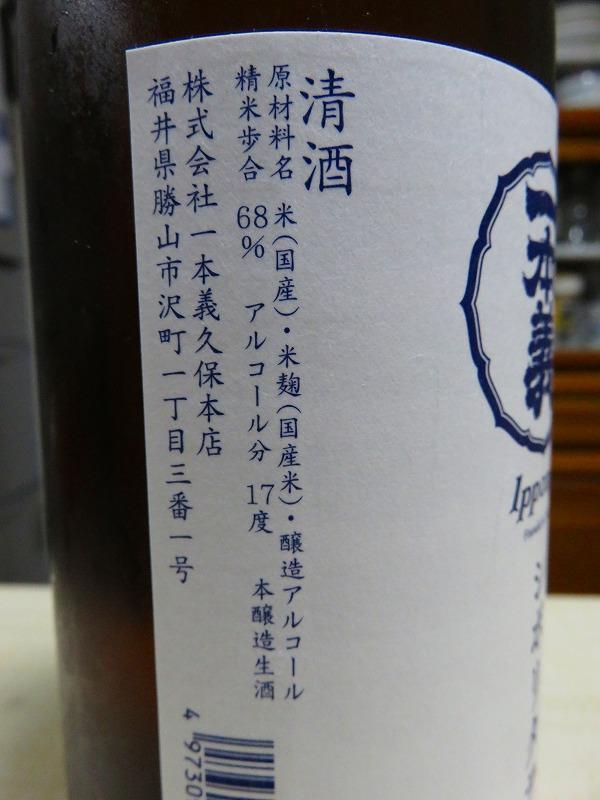 清酒
原材料名 米(国産)・米麹(国産米)・醸造アルコール
精米歩合 68% アルコール分 17度 本醸造生酒
株式会社一本義久保本店
福井県勝山市沢町一丁目三番一号
4 9730
一本義
Ippon